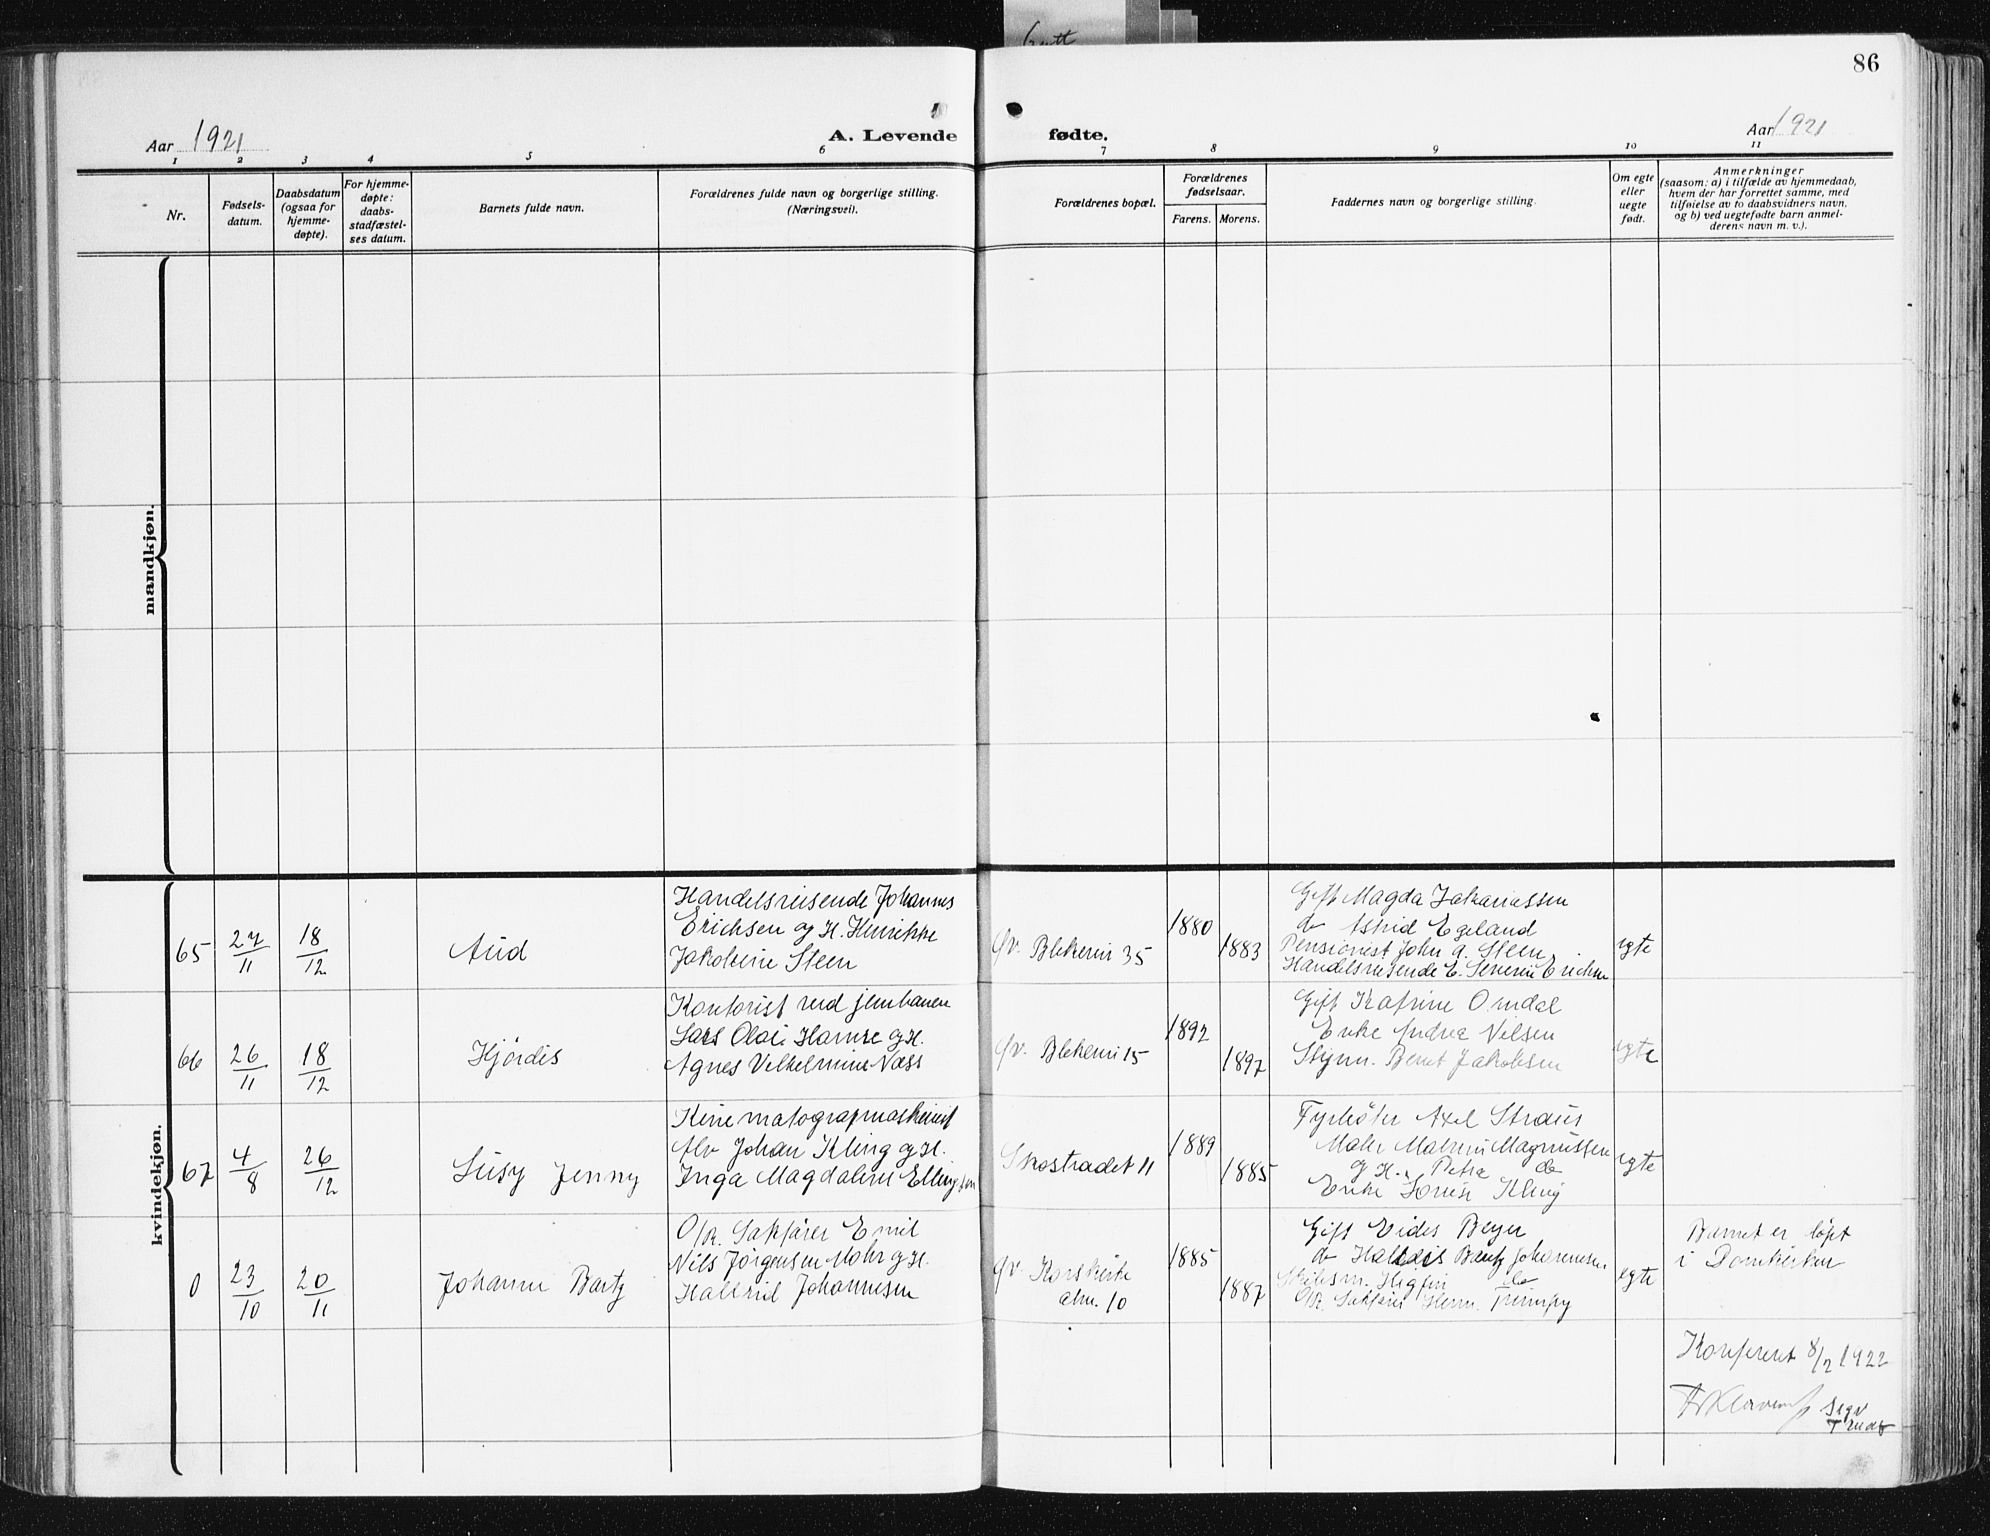 86
Aar 1921
A. Levende
fødte.
Aar 1921
1 2 3 4 5 6 7 8 9 10 11
Nr.
Fødsels-
datum.
Daabsdatum
(ogsaa for
hjemme-
døpte).
For hjemme-
døpte:
daabs-
stadfæstel-
ses datum.
Barnets fulde navn.
Forældrenes fulde navn og borgerlige stilling.
(Næringsvei).
Forældrenes bopæl.
Forældrenes
fødselsaar.
Farens. Morens.
Faddernes navn og borgerlige stilling.
Om egte
eller
uegte
født.
Anmerkninger
(saasom: a) i tilfælde av hjemmedaab,
hvem der har forrettet samme, med
tilføielse av to daabsvidners navn,
og b) ved uegtefødte barn anmel-
derens navn m. v.).
mandkjøn.
kvindekjøn.
65
27/11
18/12
Aud
Handelsreisende Johannes
Erichsen og H. Henrikke
Jakobine Steen
Øv. Blekevei 35
1880
1883
Gift Magda Zakariassen
do Astrid Egeland
Pensionist John A. Steen
Handelsreisende E. Severin Erichsen
egte
66
26/11
18/12
Hjördis
Kontorist ved jernbanen
Lars Olai Hamre og H.
Agnes Vilhelmine Næss
Øv. Blekevei 15
1892
1897
Gift Katrine Omdal
Enke Andrea Nilsen
Styrm. Bernt Jakobsen
egte
67
4/8
26/12
Susy Jenny
Kinematografmaskinist
Alv Johan Kling og H.
Inga Magdalene Ellingsen
Skostrædet 11
1889
1885
Fyrbøter Axel Straus
Maler Magnussen
og H. Petra do
Enke Louise Kling
egte
0
23/10
20/11
Johanne Bartz
O/R. Sakfører Emil
Nils Jørgensen Mohr og H.
Halfrid Johannesen
Øv. Korskirke
alm. 10
1885
1887
Gift Beyer
do Johannesen
Skibsm. do
O/R. Sakfører Herm.
egte
Barnet er døpt
i Domkirken
Konferert 8/2 1922